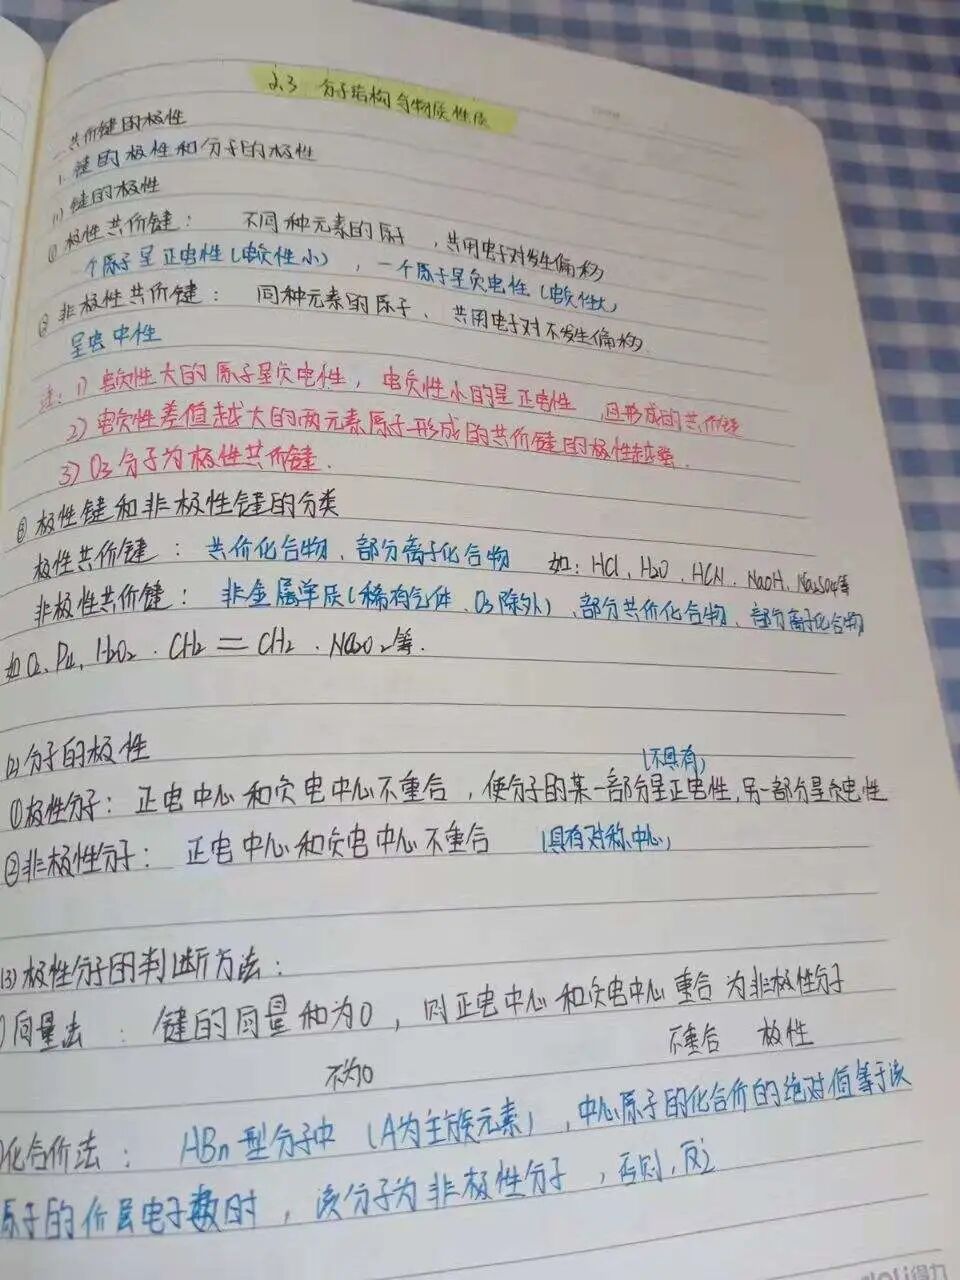 2.3 分子结构与物质性质
一、共价键的极性
1. 键的极性和分子的极性
(1) 键的极性
① 极性共价键： 不同种元素的原子，共用电子对发生偏移
一个原子呈正电性(电负性小)，一个原子呈负电性(电负性大)
② 非极性共价键： 同种元素的原子、共用电子对不发生偏移.
呈电中性
注：1) 电负性大的原子呈负电性，电负性小的呈正电性 且形成的共价键
2) 电负性差值越大的两元素原子形成的共价键的极性越强.
3) O3分子为极性共价键.
③ 极性键和非极性键的分类
极性共价键： 共价化合物、部分离子化合物 如：HCl、H2O、HCN、NaOH、Na2SO4等
非极性共价键： 非金属单质(稀有气体、O3除外)、部分共价化合物、部分离子化合物
如O2、P4、H2O2、CH2=CH2、Na2O2等.
(2) 分子的极性
(不具有)
①极性分子：正电中心和负电中心不重合，使分子的某一部分呈正电性,另一部分呈负电性
②非极性分子： 正电中心和负电中心不重合 (具有对称中心)
(3) 极性分子的判断方法：
)向量法： 键的向量和为0，则正电中心和负电中心重合为非极性分子
不为0 不重合 极性
)化合价法： ABn型分子中(A为主族元素)，中心原子的化合价的绝对值等于该
原子的价层电子数时，该分子为非极性分子，否则，反之
deli得力